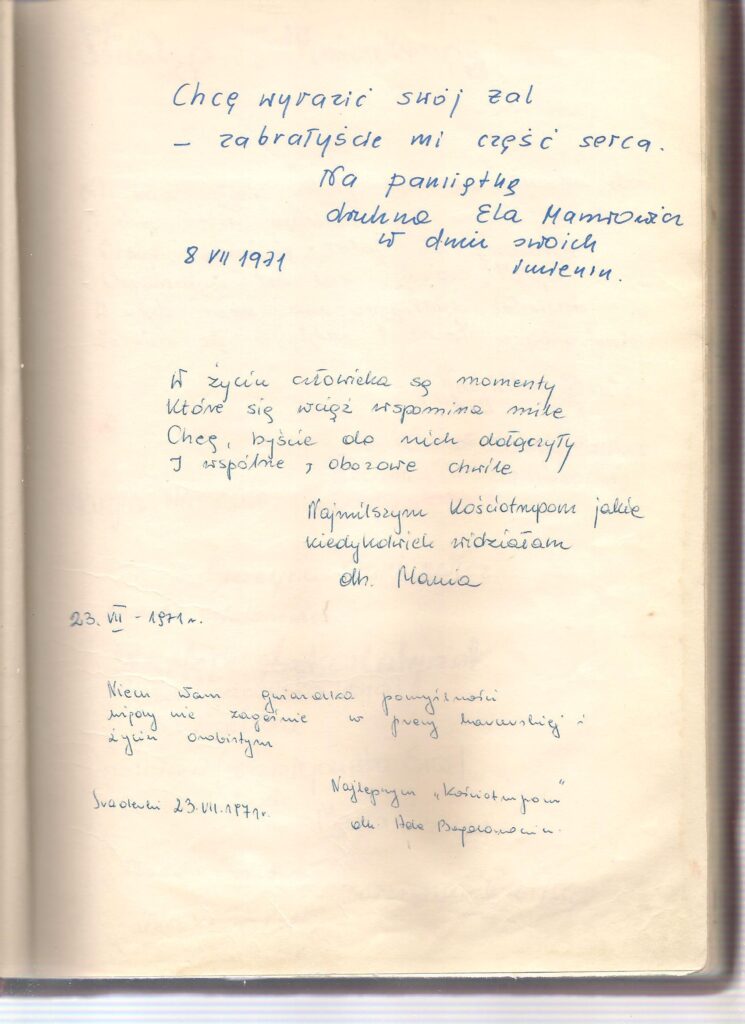 Chcę wyrazić swój żal
– zabrałyście mi część serca.
Na pamiątkę
druhna Ela
w dniu swoich
8 VII 1971
imienin.
W życiu człowieka są momenty
Które się wciąż wspomina mile
Chcę, byście do nich dołączyły
I wspólne, obozowe chwile
Najmilszym Kościotrupom jakie
kiedykolwiek widziałam
dh. Mania
23. VII - 1971 r.
Niech Wam gwiazdka pomyślności
nigdy nie zagaśnie w pracy harcerskiej i
życiu osobistym
Najlepszym "Kościotrupom"
23.VII.1971r.
dh. Ada